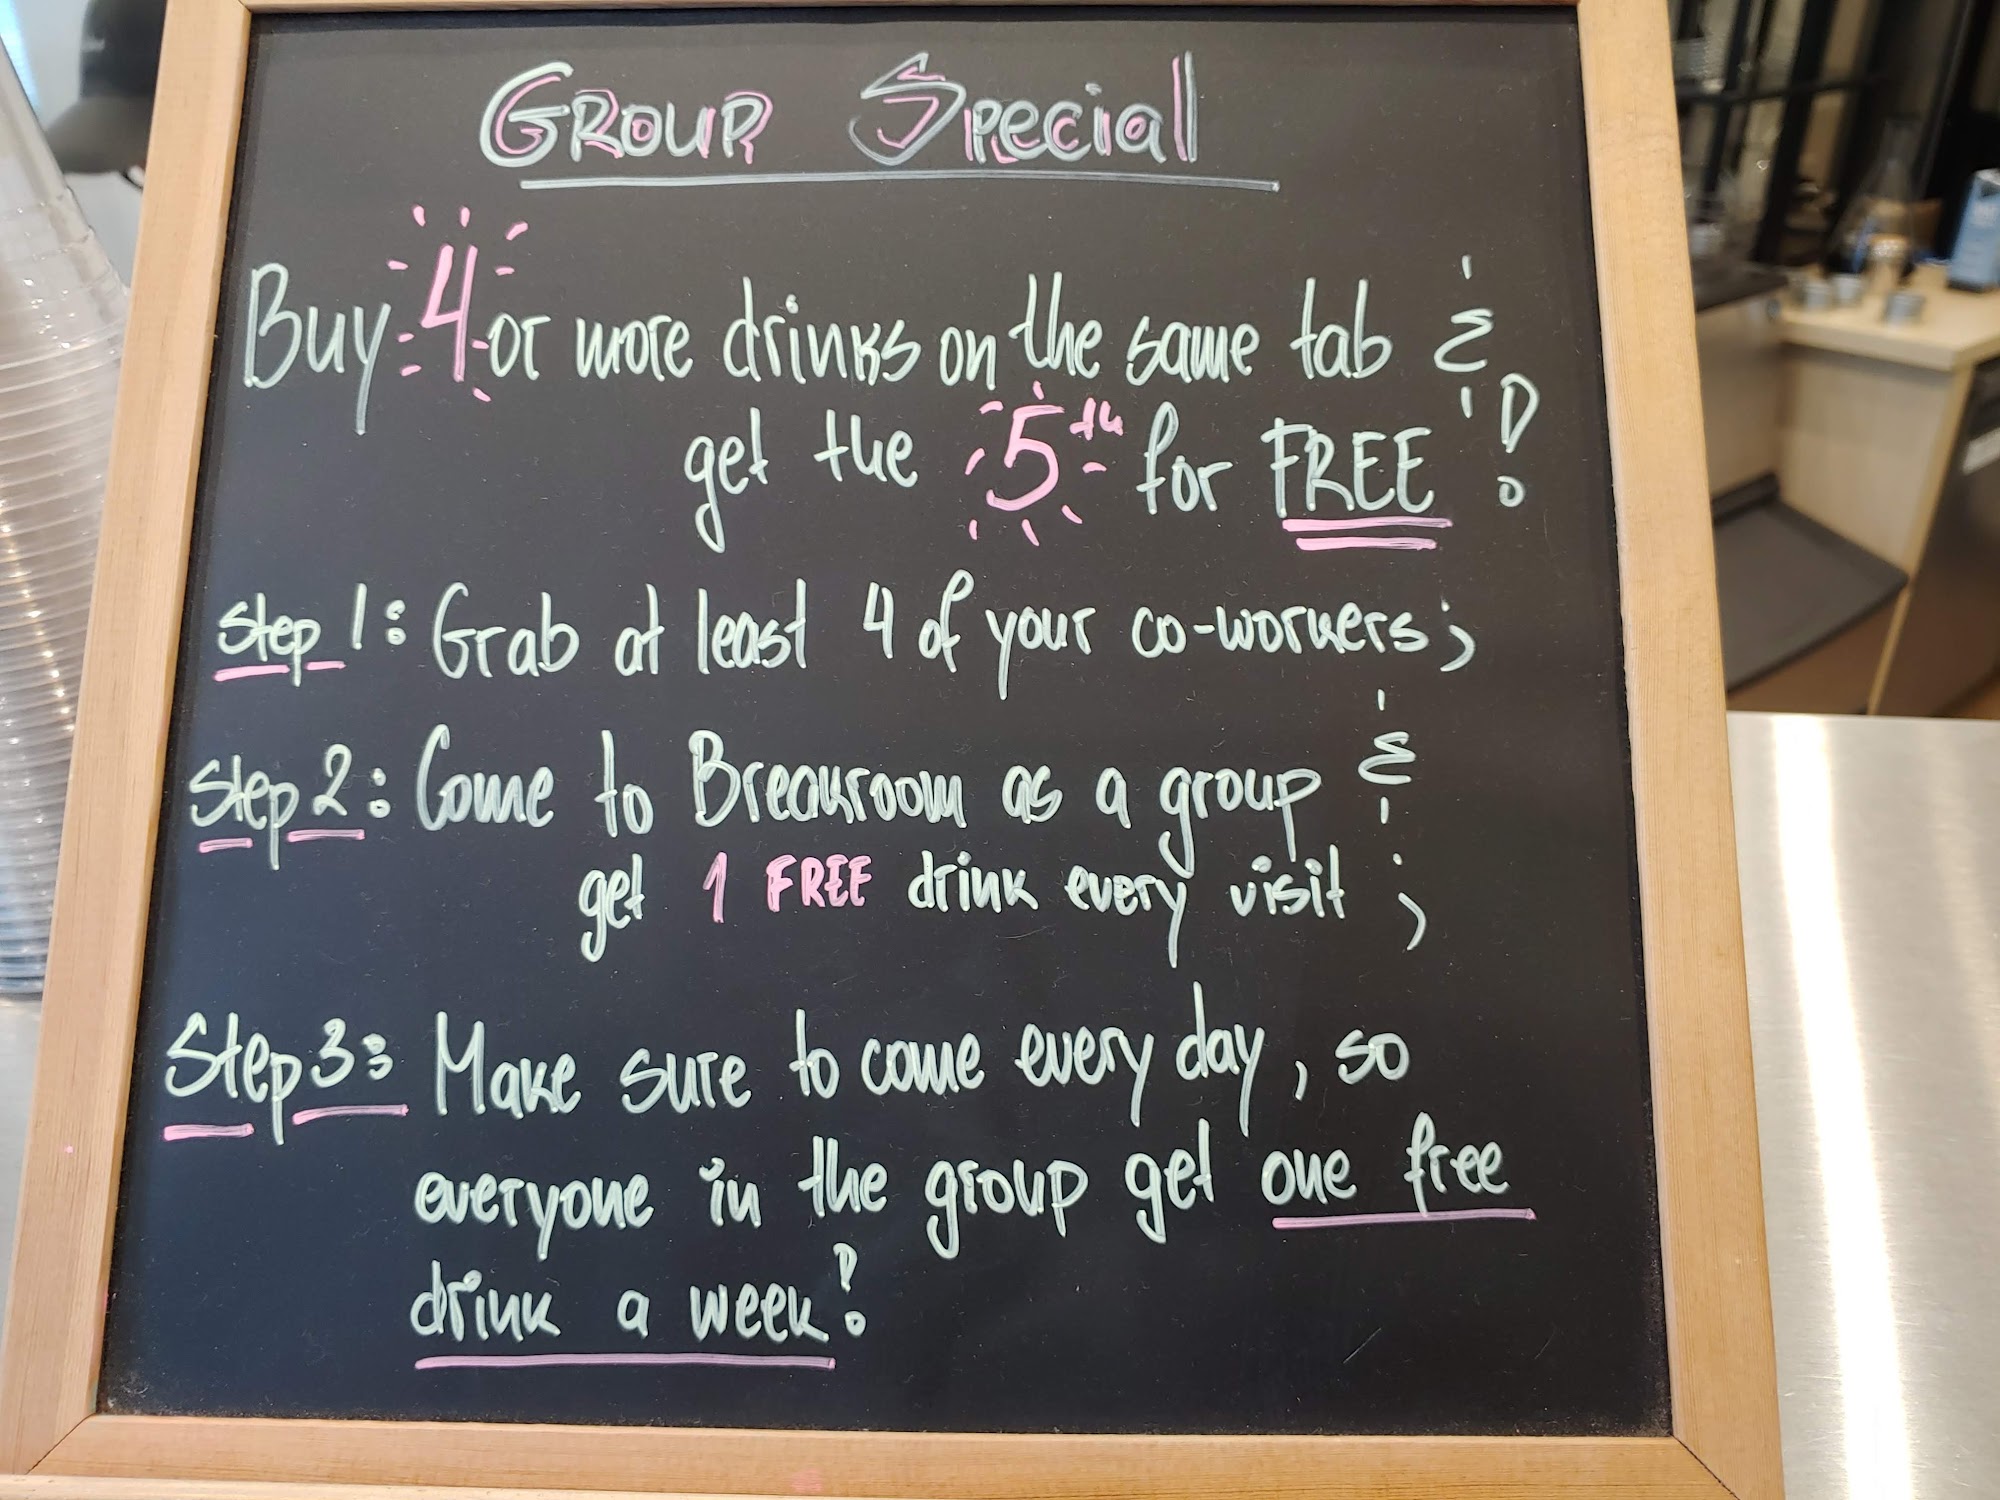 Group Special
Buy 4 or more drinks on the same tab &
get the 5th for FREE!
Step 1: Grab at least 4 of your co-workers;
Step 2: Come to Breakroom as a group &
get 1 FREE drink every visit;
Step 3: Make sure to come every day, so
everyone in the group get one free
drink a week!